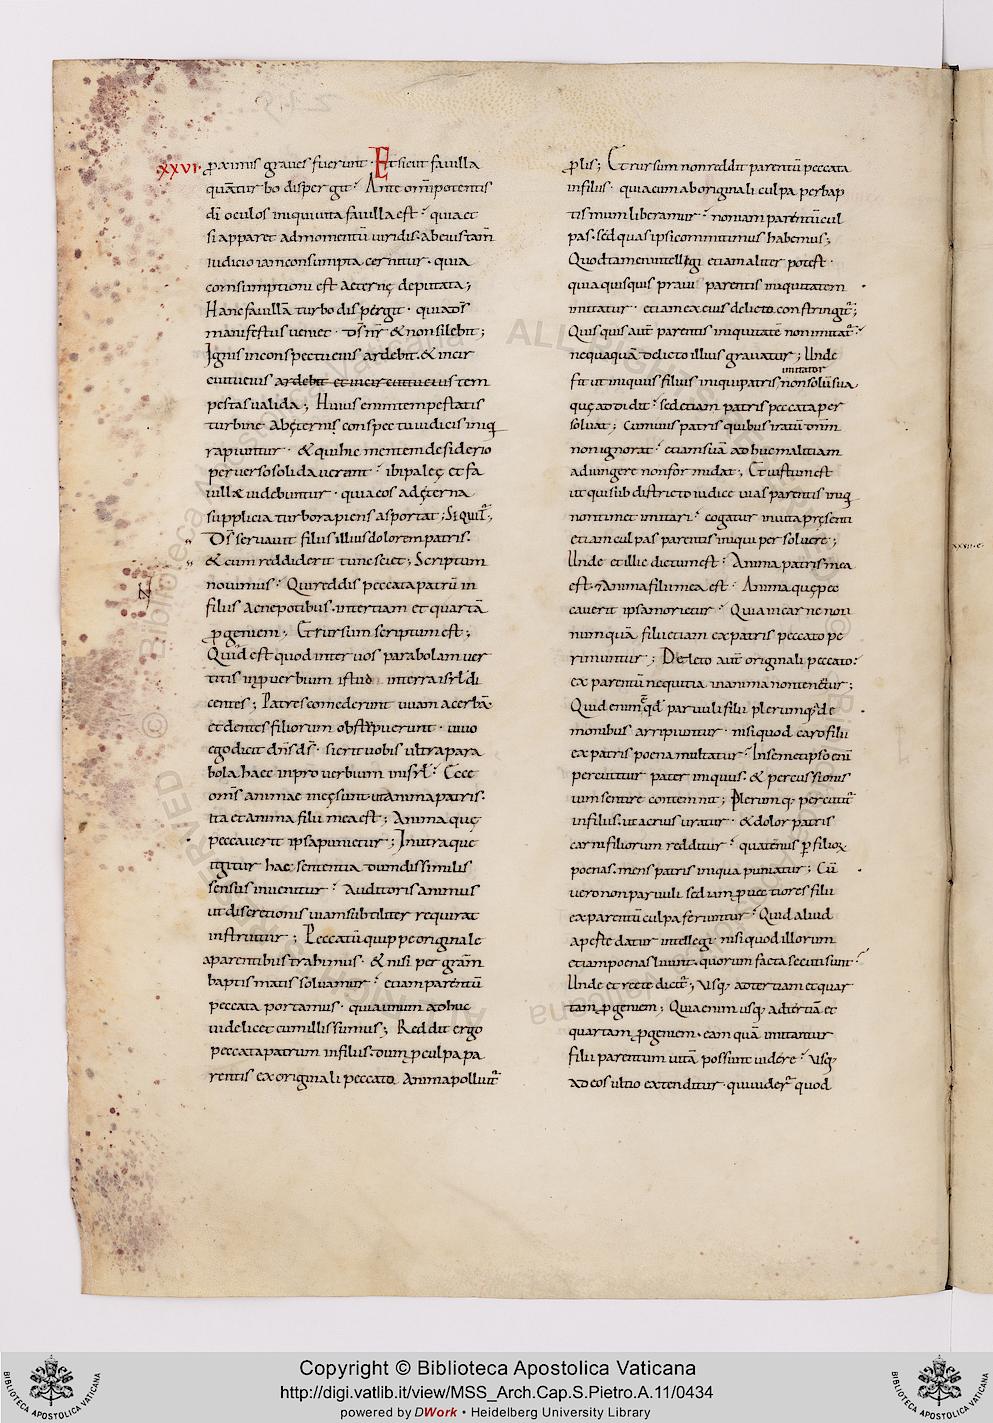 XXVI. ꝓximis graues fuerunt. Et sicut fauilla
quā turbo dispergit. Ante omīpotentis
dī oculos iniqui uita fauilla est. quia et
si apparet ad momentū uiridis. ab eius tam̄
iudicio iam consumpta cernitur. quia
comsumptioni est aeternę deputata;
Hanc fauillā turbo dispergit. quia d̄s
manifestus ueniet. d̄s nr̄ & non silebit;
Ignis in conspectu eius ardebit. & incir
cuitu eius ardebit et in circuitu eius tem
pestas ualida; Huius enim tempestatis
turbine Ab ęterni conspectu iudicis iniq
rapiuntur. & qui hic mentem desiderio
peruerso solidauerant. ibi paleę et fa
uillæ uidebuntur. quia eos ad ęterna
supplicia turbo rapiens asportat; Si quit̄;
D̄s seruauit filiis illius dolorem patris.
& cum reddiderit tunc sciet; Scriptum
nouimus. Qui reddis peccata patrū in
filiis ac nepotibus. in tertiam et quartā
ꝓgeniem; Et rursum scriptum est;
Quid est quod inter uos parabolam uer
titis in ꝓuerbium istud. in terra isrl̄ di
centes; Patres comederunt uuam acerbā
et dentes filiorum obstipuerunt. uiuo
ego dicit dn̄s d̄s. si erit uobis ultra para
bola haec in prouerbium in isrl̄. Ecce
om̄s animae meę sunt. ut anima patris.
ita et anima filii mea est; Anima quę
peccauerit ipsa punietur; In utraque
igitur hac sententia dum dissimilis
sensus inuenitur. Auditoris animus
ut discretionis uiam subtiliter requirat
instruitur; Peccatū quippe originale
a parentibus trahimus. & nisi per gram̄
baptismatis soluamur. etiam parentū
peccata portamus. quia unum adhuc
uidelicet cum illis sumus; Reddit ergo
peccata patrum in filiis. dum ꝓ culpa pa
rentis ex originali peccato Anima polluit̄
ꝓlis; Et rursum non reddit parentū peccata
in filiis. quia cum ab originali culpa per bap
tismum liberamur. non iam parentū cul
pas. sed quas ipsi committimus habemus;
Quod tamen intellegi etiam aliter potest.
quia quisquis praui parentis iniquitatem
imitatur. etiam ex eius delicto constringit̄;
Quisquis aut̄ parentis iniquitatē non imitat̄
nequaquā delicto illius grauatur; Unde
imitator
fit ut iniquus filius iniqui patris non solū sua
quę addidit. sed etiam patris peccata per
soluat; Cum uius patris quibus iratū dn̄m
non ignorat. etiam suā adhuc malitiam
adiungere non formidat; Et iustum est
ut qui sub districto iudice uias parentis iniq
non timet imitari. cogatur in uita presenti
etiam culpas parentis iniqui persoluere;
Unde et illic dictum est. Anima patris mea
est. & anima filii mea est. Anima quę pec
cauerit ipsa morietur. Quia in carne non
numquā filii etiam ex patris peccato pe
rimuntur; Deleto aut̄ originali peccato.
ex parentū nequitia in anima non tenētur;
Quid enim ē qd̄ paruuli filii plerumq; de
monibus arripiuntur. nisi quod caro filii
ex patris poena multatur. In semetipso enī
percutitur pater iniquus. & percussionis
uim sentire contemnit; Plerumq; percutit̄
in filiis. ut acrius uratur. & dolor patris
carni filiorum redditur. quatenus ꝑ filioꝝ
poenas. mens patris iniqua puniatur; Cū
uero non paruuli. sed iam ꝓuectiores filii
ex parentū culpa feriuntur. Quid aliud
apeste datur intellegi. nisi quod illorum
etiam poenas luunt. quorum facta secuti sunt.
Unde et recte dicit̄; Usq; ad tertiam et quar
tam ꝓgeniem; Quia enim usq; ad tertiā et
quartam ꝓgeniem. eam quā imitantur
filii parentum uitā possunt uidere. usq;
ad eos ultio extenditur. qui uider̄ quod
Copyright © Biblioteca Apostolica Vaticana
http://digi.vatlib.it/view/MSS_Arch.Cap.S.Pietro.A.11/0434
powered by DWork • Heidelberg University Library